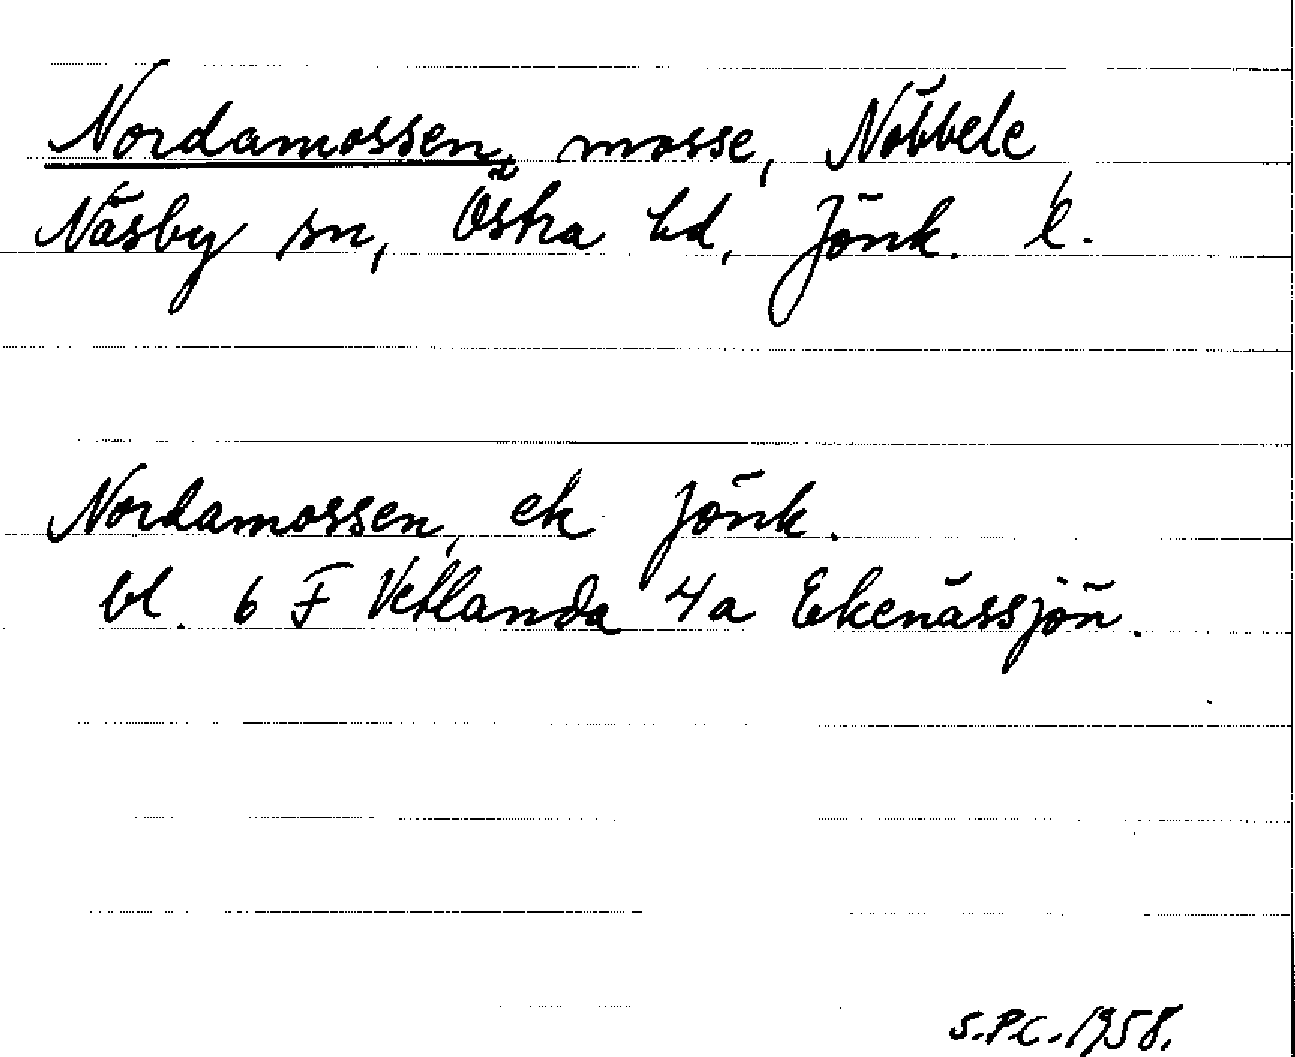 Nordamossen, mosse, Nöbbele
Näsby sn, Östra hd, Jönk. l.
Nordamossen, ek Jönk.
bl. 6 F Vetlanda 4a Ekenässjön.
S.P.C. 1958.